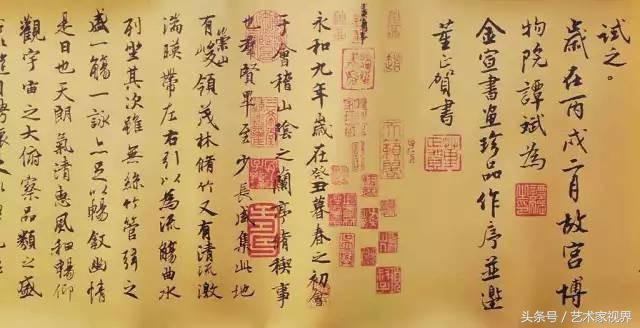 试之。
歲在丙戌二月故宫博
物院譚斌為
金宣書畫珍品作序並邀
董正賀書
永和九年歲在癸丑暮春之初會
于會稽山陰之蘭亭脩稧事
也羣賢畢至少長咸集此地
有崇山峻領茂林脩竹又有清流激
湍暎帶左右引以為流觴曲水
列坐其次雖無絲竹管弦之
盛一觴一詠亦足以暢叙幽情
是日也天朗氣清惠風和暢仰
觀宇宙之大俯察品類之盛
头条号／艺术家视界